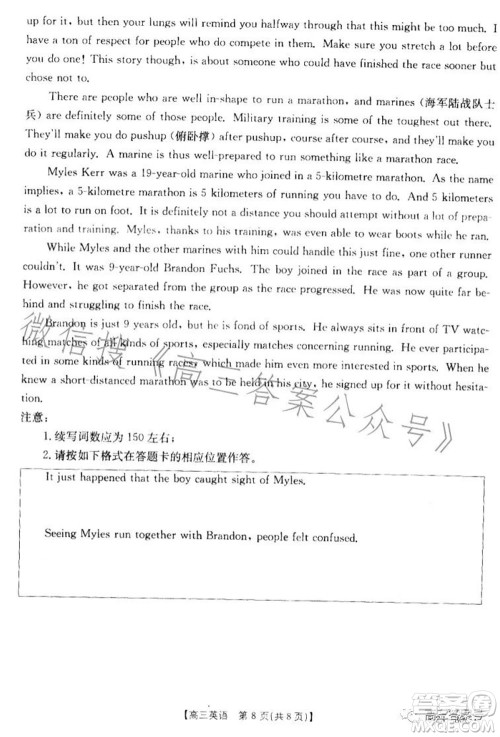 up for it, but then your lungs will remind you halfway through that this might be too much. I
have a ton of respect for people who do compete in them. Make sure you stretch a lot before
you do one! This story though, is about someone who could have finished the race sooner but
chose not to.
There are people who are well-in-shape to run a marathon, and marines (海军陆战队士
兵) are one of those groups. Military training is some of the toughest around.
They'll make you do pushup (俯卧撑) after pushup, course after course, and make you
do it regularly. A marine is thus well-prepared to run something like a marathon race.
Myles Kerr was a 19-year-old marine who joined in a 5-kilometre marathon. As the name
implies, a 5-kilometre marathon is 5 kilometers of running you have to do. 5 kilometers
is a lot to run on foot. It is definitely not a distance you should attempt without prepara-
tion and training. Myles, thanks to his training, was even able to wear boots while he ran.
While Myles and the other marines with him could handle this just fine, one other runner
couldn't. It was 9-year-old Brandon Fuchs. The boy joined in the race as part of a group.
However, he got separated from the group as the race progressed. He was now quite far be-
hind and struggling to finish the race.
Brandon is just 9 years old, but he is fond of sports. He always sits in front of TV watch-
ing matches of all kinds of sports, especially matches concerning running. He ever participa-
ted in some kinds of running races, which made him even more interested in sports. When he
knew a short-distanced marathon was to be held in his city, he signed up for it without hesita-
tion.
注意:
1. 续写词数应为 150 左右;
2. 请按如下格式在答题卡的相应位置作答。
It just happened that the boy caught sight of Myles.
Seeing Myles run together with Brandon, people felt confused.
【高三英语 第 8 页(共 8 页)】
微信搜《高三答案公众号》